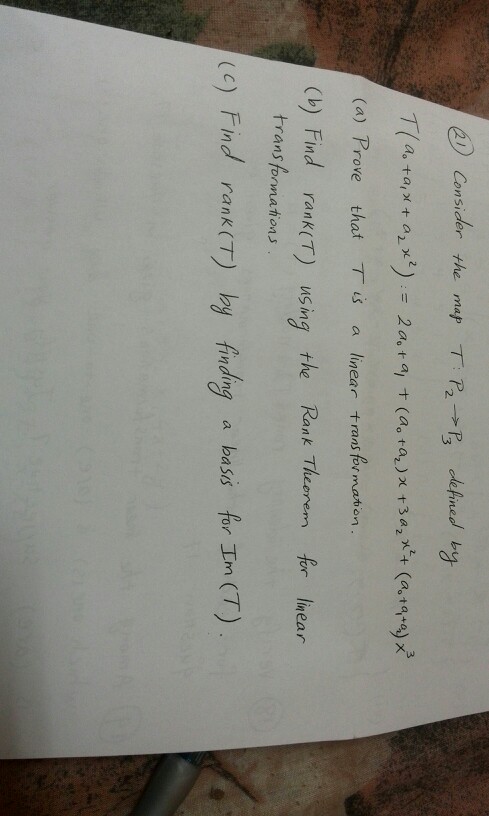 (21) Consider the map T: P₂ → P₃ defined by
T(a₀+a₁x+a₂x²) := 2a₀+a₁ + (a₀+a₂)x + 3a₂x² + (a₀+a₁+a₂)x³
(a) Prove that T is a linear transformation.
(b) Find rank(T) using the Rank Theorem for linear
transformations.
(c) Find rank(T) by finding a basis for Im(T).